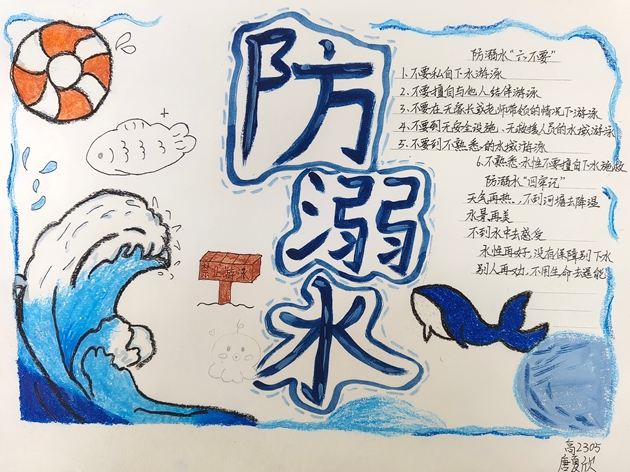 防溺水
防溺水“六不要”
1.不要私自下水游泳
2.不要擅自与他人结伴游泳
3.不要在无家长或老师带领的情况下游泳
4.不要到无安全设施、无救援人员的水域游泳
5.不要到不熟悉的水域游泳
6.不熟悉水性不要擅自下水施救
防溺水“四牢记”
天气再热，不到河塘去降温
水景再美
不到水中去感受
水性再好，没有保障别下水
别人再劝，不用生命去逞能
禁止游泳
高2305
唐夏欣